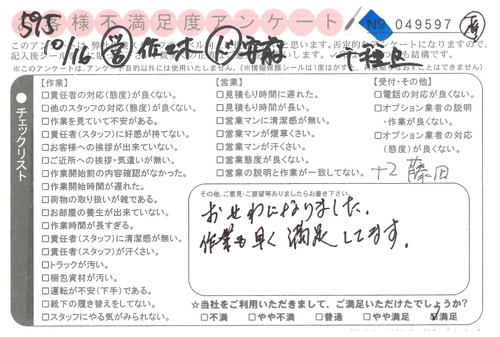 595
お客様不満足度アンケート
No 049597
10/16 営 佐々木
千種区
このアンケートは
記入後シール
※このアンケートは、アンケート目的以外には使用いたしません。
チェックリスト
【作業】
□責任者の対応(態度)が良くない。
□他のスタッフの対応(態度)が良くない。
□作業を見ていて不安がある。
□責任者(スタッフ)に好感が持てない。
□お客様への挨拶が出来ていない。
□ご近所への挨拶・気遣いが無い。
□作業開始前の内容確認がなかった。
□作業開始時間が遅れた。
□荷物の取り扱いが雑である。
□お部屋の養生が出来ていない。
□作業時間が長すぎる。
□責任者(スタッフ)に清潔感が無い。
□責任者(スタッフ)が汗くさい。
□トラックが汚い。
□梱包資材が汚い。
□運転が不安(下手)である。
□靴下の履き替えをしてない。
□スタッフにやる気がみられない。
【営業】
□見積もり時間に遅れた。
□見積もり時間が長い。
□営業マンに清潔感が無い。
□営業マンが煙草くさい。
□営業マンが汗くさい。
□営業態度が良くない。
□営業の説明と作業が一致してない。
【受付・その他】
□電話の対応が良くない。
□オプション業者の説明
・作業が良くない。
□オプション業者の対応
(態度)が良くない。
+2 藤田
その他、ご意見・ご要望等ありましたらお書き下さい。
おせわになりました。
作業も早く満足してます。
☆当社をご利用いただきまして、ご満足いただけたでしょうか?
□不満 □やや不満 □普通 □やや満足 ☑満足